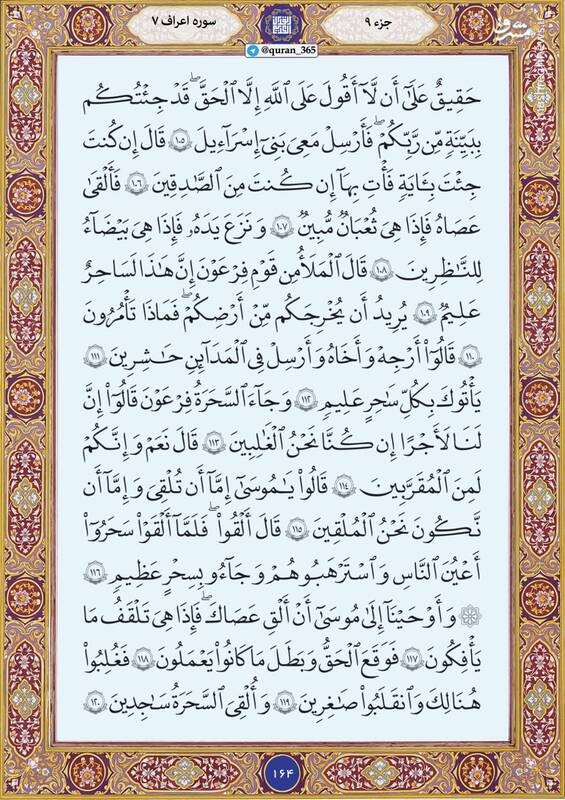 جزء ۹
سوره اعراف ۷
@quran_365
حَقِيقٌ عَلَىٰٓ أَن لَّآ أَقُولَ عَلَى ٱللَّهِ إِلَّا ٱلۡحَقَّۚ قَدۡ جِئۡتُكُم
بِبَيِّنَةٖ مِّن رَّبِّكُمۡ فَأَرۡسِلۡ مَعِيَ بَنِيٓ إِسۡرَٰٓءِيلَ ١٠٥ قَالَ إِن كُنتَ
جِئۡتَ بِـَٔايَةٖ فَأۡتِ بِهَآ إِن كُنتَ مِنَ ٱلصَّـٰدِقِينَ ١٠٦ فَأَلۡقَىٰ
عَصَاهُ فَإِذَا هِيَ ثُعۡبَانٞ مُّبِينٞ ١٠٧ وَنَزَعَ يَدَهُۥ فَإِذَا هِيَ بَيۡضَآءُ
لِلنَّـٰظِرِينَ ١٠٨ قَالَ ٱلۡمَلَأُ مِن قَوۡمِ فِرۡعَوۡنَ إِنَّ هَٰذَا لَسَٰحِرٌ
عَلِيمٞ ١٠٩ يُرِيدُ أَن يُخۡرِجَكُم مِّنۡ أَرۡضِكُمۡۖ فَمَاذَا تَأۡمُرُونَ
١١٠ قَالُوٓاْ أَرۡجِهۡ وَأَخَاهُ وَأَرۡسِلۡ فِي ٱلۡمَدَآئِنِ حَٰشِرِينَ ١١١
يَأۡتُوكَ بِكُلِّ سَٰحِرٍ عَلِيمٖ ١١٢ وَجَآءَ ٱلسَّحَرَةُ فِرۡعَوۡنَ قَالُوٓاْ إِنَّ
لَنَا لَأَجۡرًا إِن كُنَّا نَحۡنُ ٱلۡغَٰلِبِينَ ١١٣ قَالَ نَعَمۡ وَإِنَّكُمۡ
لَمِنَ ٱلۡمُقَرَّبِينَ ١١٤ قَالُواْ يَٰمُوسَىٰٓ إِمَّآ أَن تُلۡقِيَ وَإِمَّآ أَن
نَّكُونَ نَحۡنُ ٱلۡمُلۡقِينَ ١١٥ قَالَ أَلۡقُواْۖ فَلَمَّآ أَلۡقَوۡاْ سَحَرُوٓاْ
أَعۡيُنَ ٱلنَّاسِ وَٱسۡتَرۡهَبُوهُمۡ وَجَآءُو بِسِحۡرٍ عَظِيمٖ ١١٦
۞ وَأَوۡحَيۡنَآ إِلَىٰ مُوسَىٰٓ أَنۡ أَلۡقِ عَصَاكَۖ فَإِذَا هِيَ تَلۡقَفُ مَا
يَأۡفِكُونَ ١١٧ فَوَقَعَ ٱلۡحَقُّ وَبَطَلَ مَا كَانُواْ يَعۡمَلُونَ ١١٨ فَغُلِبُواْ
هُنَالِكَ وَٱنقَلَبُواْ صَٰغِرِينَ ١١٩ وَأُلۡقِيَ ٱلسَّحَرَةُ سَٰجِدِينَ ١٢٠
۱۶۴